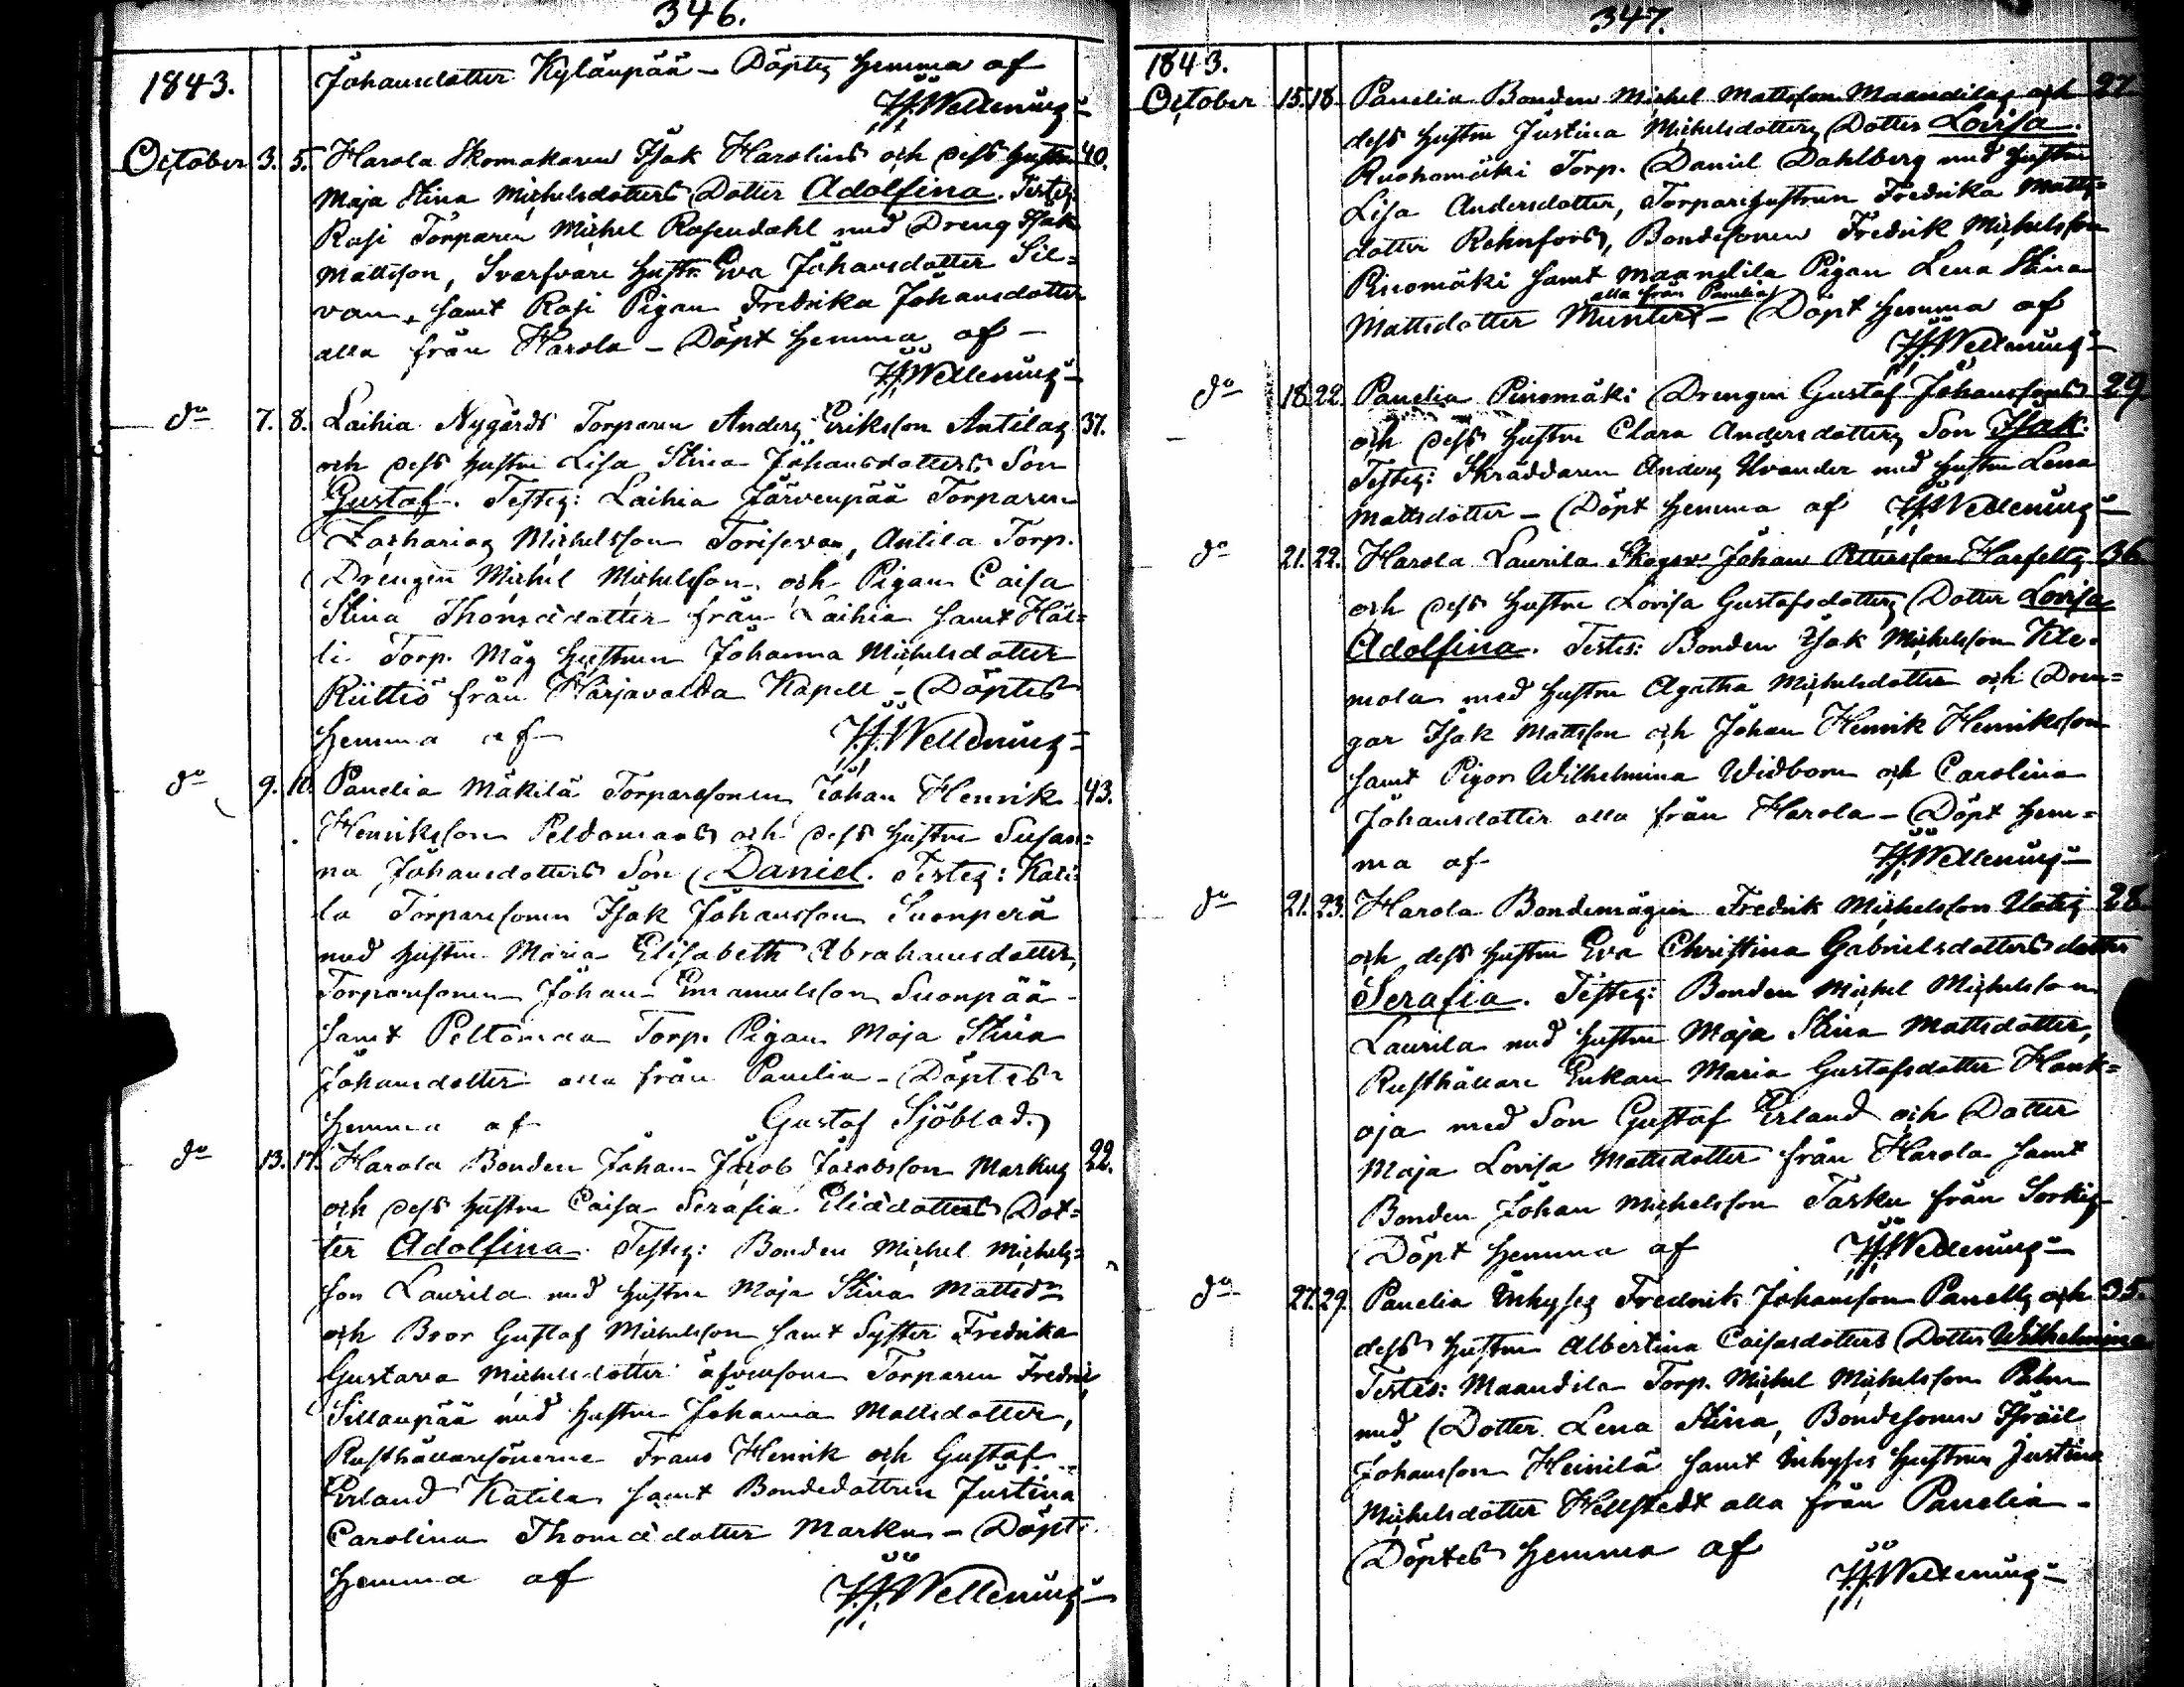 346.
1843.
Johansdotter Kyläupää – Döptes hemma af
October 3. 5. Harola Skomakaren Isak Harolins och dess hustru 40.
Maja Stina Michelsdotters Dotter Adolfina. Testes:
Rasi Torparen Michel Rosendahl med Dreng Isak
Mattsson, Svarfvare hustr. Eva Johansdotter Sil=
van, samt Rasi Pigan Fredrika Johansdotter
alla från Harola – Döpt hemma af –
do 7. 8. Laihia Nygårds Torparen Anders Eriksson Antilas 37.
och dess hustru Lisa Stina Johansdotters Son
Gustaf. Testes: Laihia Järvenpää Torparen
Zacharias Michelsson Torisevan, Antila Torp.
Drengen Michel Michelsson och Pigan Caisa
Stina Thomædotter från Laihia samt
Torp. Måg hustrun Johanna Michelsdotter
från Harjavalda Kapell – Döptes
hemma af
do 9. 10. Panelia Mäkilä Torparesonen Johan Henrik 43.
Henriksson Peldomans och dess hustru Susan=
na Johansdotters Son Daniel. Testes: Kati=
la Torparesonen Isak Johansson Suonperä
med hustru Maria Elisabeth Abrahamsdotter,
Torparesonen Johan Emanuelsson Suonpää
samt Peltoman Torp. Pigan Maja Stina
Johansdotter alla från Panelia – Döptes
hemma af Gustaf Sjöblad.
do 13. 17. Harola Bonden Johan Jacob Jacobsson Markus 22.
och dess hustru Caisa Serafia Eliædotters Dot=
ter Adolfina. Testes: Bonden Michel Michels=
son Laurila med hustru Maja Stina Mattsdr
och Bror Gustaf Michelsson samt Syster Fredrika
Gustava Michelsdotter äfvensom Torparen Fredric
Sillanpää med hustru Johanna Mattsdotter,
Rusthållaresönerne Frans Henrik och Gustaf
Erland Katila samt Bondedottren Justina
Carolina Thomædotter Markus – Döpt
hemma af
347.
1843.
October 15. 18. Panelia Bonden Michel Mattsson Maandilas och 27.
dess hustru Justina Michelsdotters Dotter Lovisa.
Ruohomäki Torp. Daniel Dahlberg med hustru
Lisa Andersdotter, Torparehustrun Fredrika Matts=
dotter Rehnfors, Bondesonen Fredrik Michelsson
Pinomäki samt Maandila Pigan Lena Stina
alla från Panelia
Mattsdotter Munter – Döpt hemma af
do 18. 22. Panelia Pinomäki Drengen Gustaf Johanssons 29.
och dess hustru Clara Andersdotters Son Isak.
Testes: Skräddaren Anders Uvander med hustru Lena
Mattsdotter – Döpt hemma af
do 21. 22. Harola Laurila Skogsv. Johan Pettersson Harfells 36.
och dess hustru Lovisa Gustafsdotters Dotter Lovisa
Adolfina. Testes: Bonden Isak Michelsson Kle=
mola med hustru Agatha Michelsdotter och Dren=
gar Isak Mattsson och Johan Henrik Henriksson
samt Pigor Wilhelmina Widbom och Carolina
Johansdotter alla från Harola – Döpt hem=
ma af
do 21. 23. Harola Bondemågen Fredrik Michelsson Uotis 28.
och dess hustru Eva Christina Gabrielsdotters dotter
Serafia. Testes: Bonden Michel Michelsson
Laurila med hustru Maja Stina Mattsdotter,
Rusthållare Enkan Maria Gustafsdotter Hank=
oja med Son Gustaf Erland och Dotter
Maja Lovisa Mattsdotter från Harola samt
Bonden Johan Michelsson Tasku från Sorkis
Döpt hemma af
do 27. 29. Panelia Inhyses Fredrik Johansson Panells och 35.
dess hustru Albertina Caisasdotters Dotter Wilhelmina
Testes: Maandila Torp. Michel Michelsson Palm
med Dotter Lena Stina, Bondesonen Israël
Johansson Heinilä samt Inhyses hustrun Justina
Michelsdotter Hellstedt alla från Panelia –
Döptes hemma af